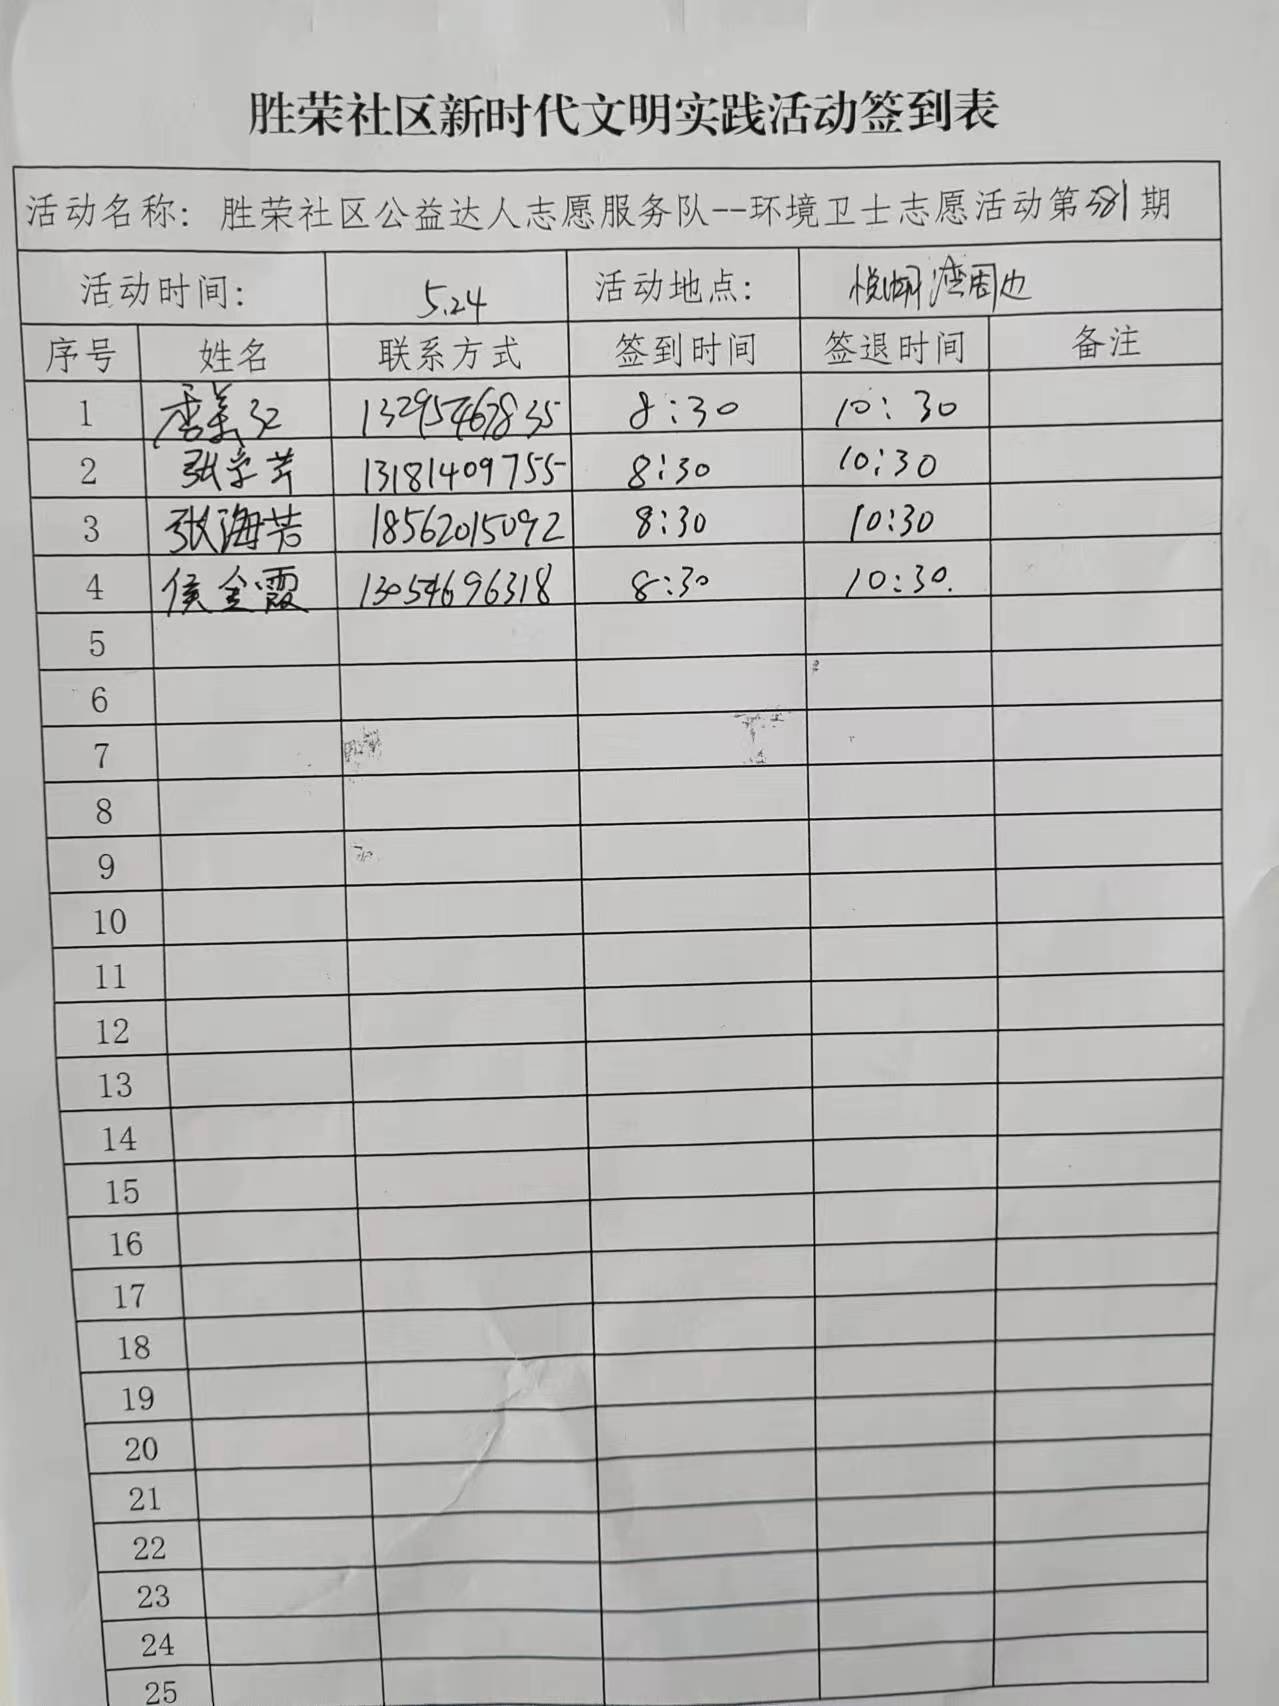 胜荣社区新时代文明实践活动签到表
活动名称: 胜荣社区公益达人志愿服务队--环境卫士志愿活动第381期
活动时间: 5.24 活动地点: 悦湖湾周边
序号 姓名 联系方式 签到时间 签退时间 备注
1 唐美红 13295467835 8:30 10:30
2 张学芹 13181409755 8:30 10:30
3 张海芸 18562015092 8:30 10:30
4 侯金霞 13054696318 8:30 10:30.
5
6
7
8
9
10
11
12
13
14
15
16
17
18
19
20
21
22
23
24
25